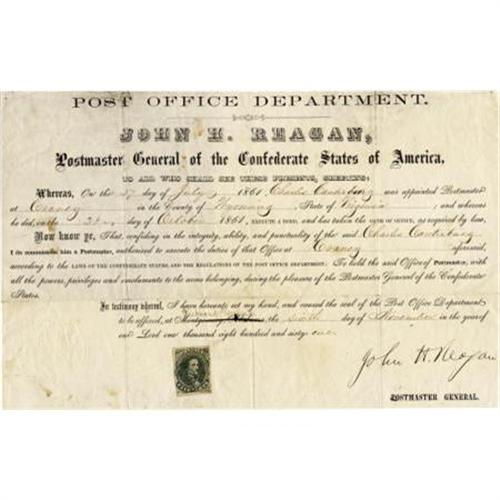 POST OFFICE DEPARTMENT.
JOHN H. REAGAN,
Postmaster General of the Confederate States of America,
TO ALL WHO SHALL SEE THESE PRESENTS, GREETING:
Whereas, On the 27 day of July, 1861 Charles was appointed Postmaster
at in the County of Wyoming, State of Virginia; and whereas
he did, on the day of October 1861, EXECUTE A BOND, and has taken the OATH OF OFFICE, as required by law,
Now know ye, That, confiding in the integrity, ability, and punctuality of the said Charles
I do commission him a Postmaster, authorized to execute the duties of that Office at aforesaid,
according to the LAWS OF THE CONFEDERATE STATES, AND THE REGULATIONS OF THE POST OFFICE DEPARTMENT: To hold the said Office of Postmaster, with
all the powers, privileges and emoluments to the same belonging, during the pleasure of the Postmaster General of the Confederate
States.
In testimony whereof, I have hereunto set my hand, and caused the seal of the Post Office Department
to be affixed, at the sixth day of November in the year of
our Lord one thousand eight hundred and sixty one
John H. Reagan
POSTMASTER GENERAL.